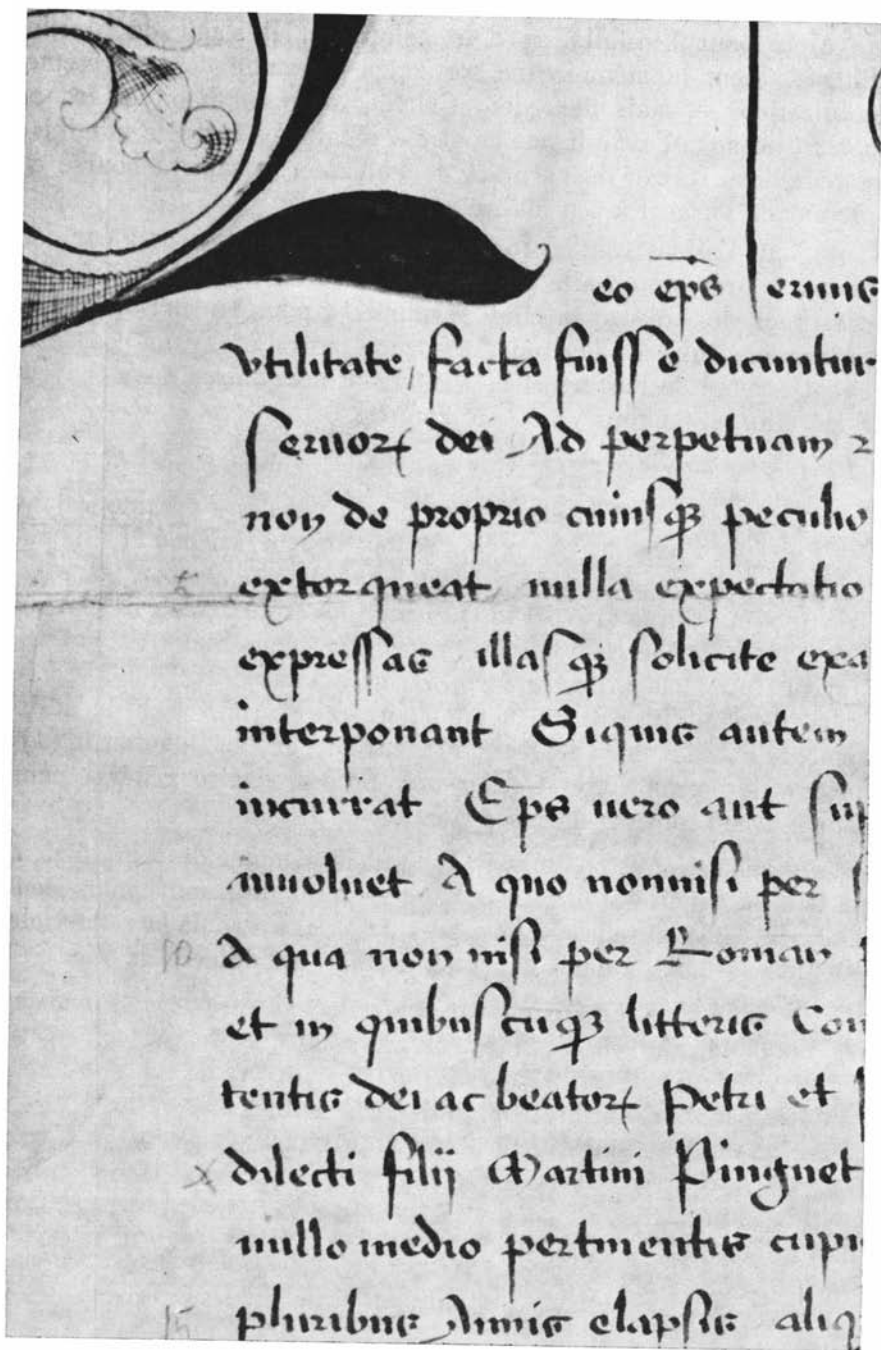 eo ep̄s seruus
vtilitate, facta fuisse dicuntur
seruoꝝ dei Ad perpetuam r
non de proprio cuiusqꝫ peculio
extorqueat nulla expectatio
expressas illasqꝫ solicite exa
interponant Siquis autem
incurrat Ep̄s uero aut sup
inuoluet A quo nonnisi per s
10 A qua non nisi per Roman
et in quibuscuqꝫ litteris Con
tentis dei ac beatoꝝ Petri et
x dilecti filij Martini Pinguet
nullo medio pertinentis cupi
15 pluribus Annis elapsis aliq